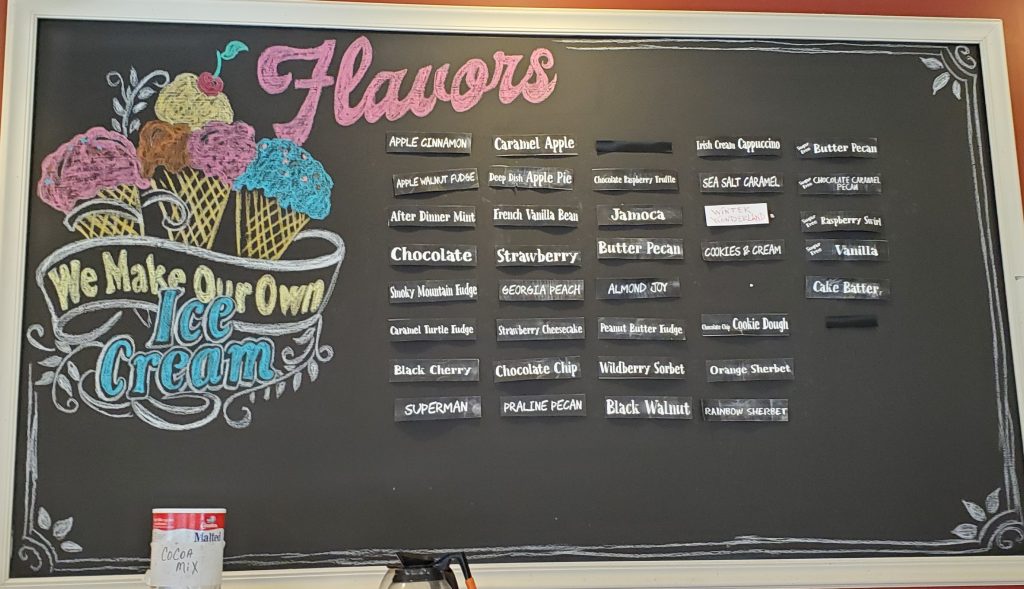 Flavors
We Make Our Own
Ice
Cream
APPLE CINNAMON
APPLE WALNUT FUDGE
After Dinner Mint
Chocolate
Smoky Mountain Fudge
Caramel Turtle Fudge
Black Cherry
SUPERMAN
Caramel Apple
Deep Dish Apple Pie
French Vanilla Bean
Strawberry
GEORGIA PEACH
Strawberry Cheesecake
Chocolate Chip
PRALINE PECAN
Chocolate Raspberry Truffle
Jamoca
Butter Pecan
ALMOND JOY
Peanut Butter Fudge
Wildberry Sorbet
Black Walnut
Irish Cream Cappuccino
SEA SALT CARAMEL
WINTER
WONDERLAND
COOKIES & CREAM
Chocolate Chip Cookie Dough
Orange Sherbet
RAINBOW SHERBET
Sugar Free Butter Pecan
Sugar Free CHOCOLATE CARAMEL
PECAN
Sugar Free Raspberry Swirl
Sugar Free Vanilla
Cake Batter
Malted
COCOA
MIX